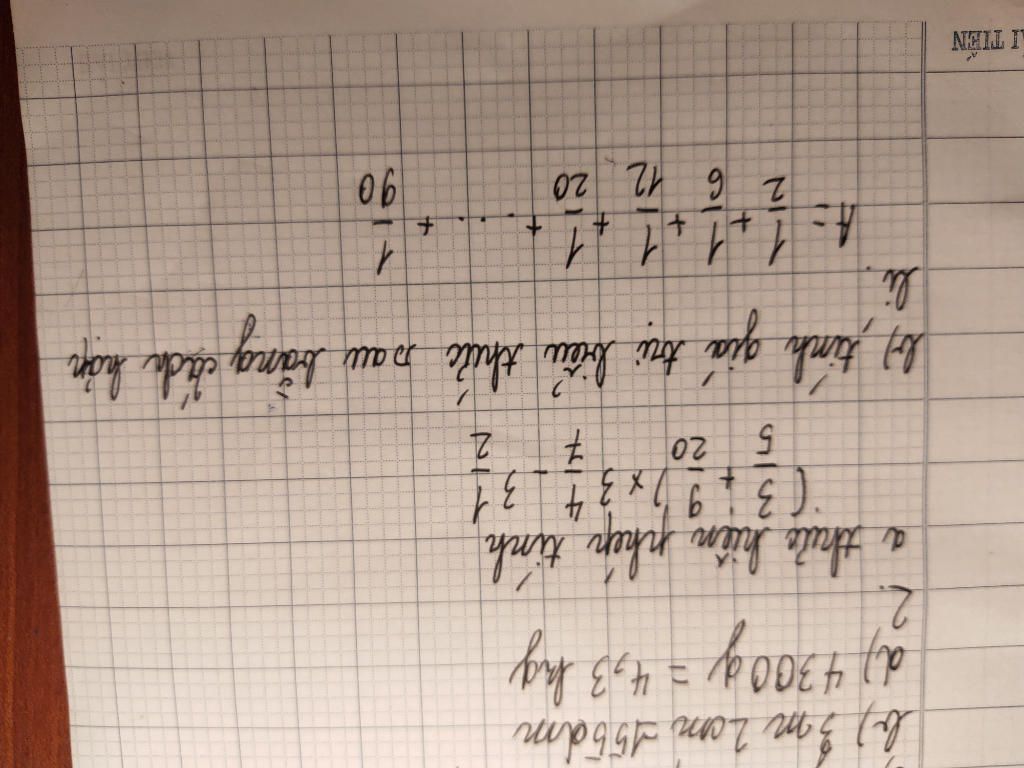 b) 3m 2cm = 155dm
d) 4300g = 4,3 kg
2.
a thức hiện phép tính
( 3/5 + 9/20 ) × 3 4/7 - 3 1/2
b) tính giá trị biểu thức sau bằng cách hợp
lí.
A = 1/2 + 1/6 + 1/12 + 1/20 + . . . + 1/90
TIẾN